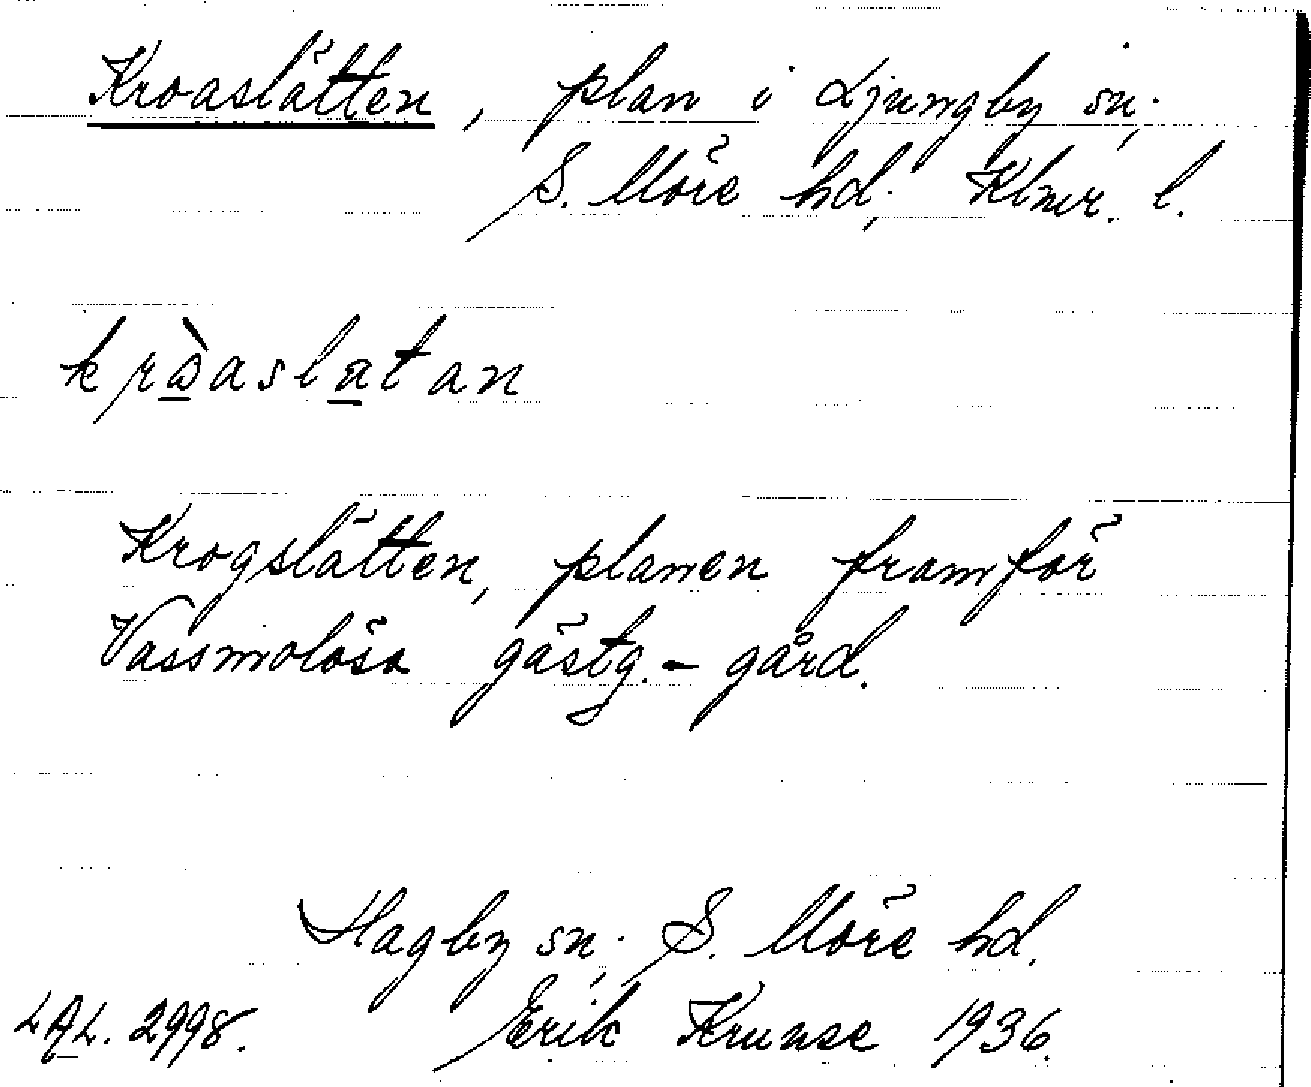 Kroaslätten, plan i Ljungby sn;
S. Möre hd; Klmr. l.
kròaslatan
Krogslätten, planen framför
Vassmolösa gästg.-gård.
Hagby sn; S. Möre hd.
LAL. 2998. Erik Krunse 1936.